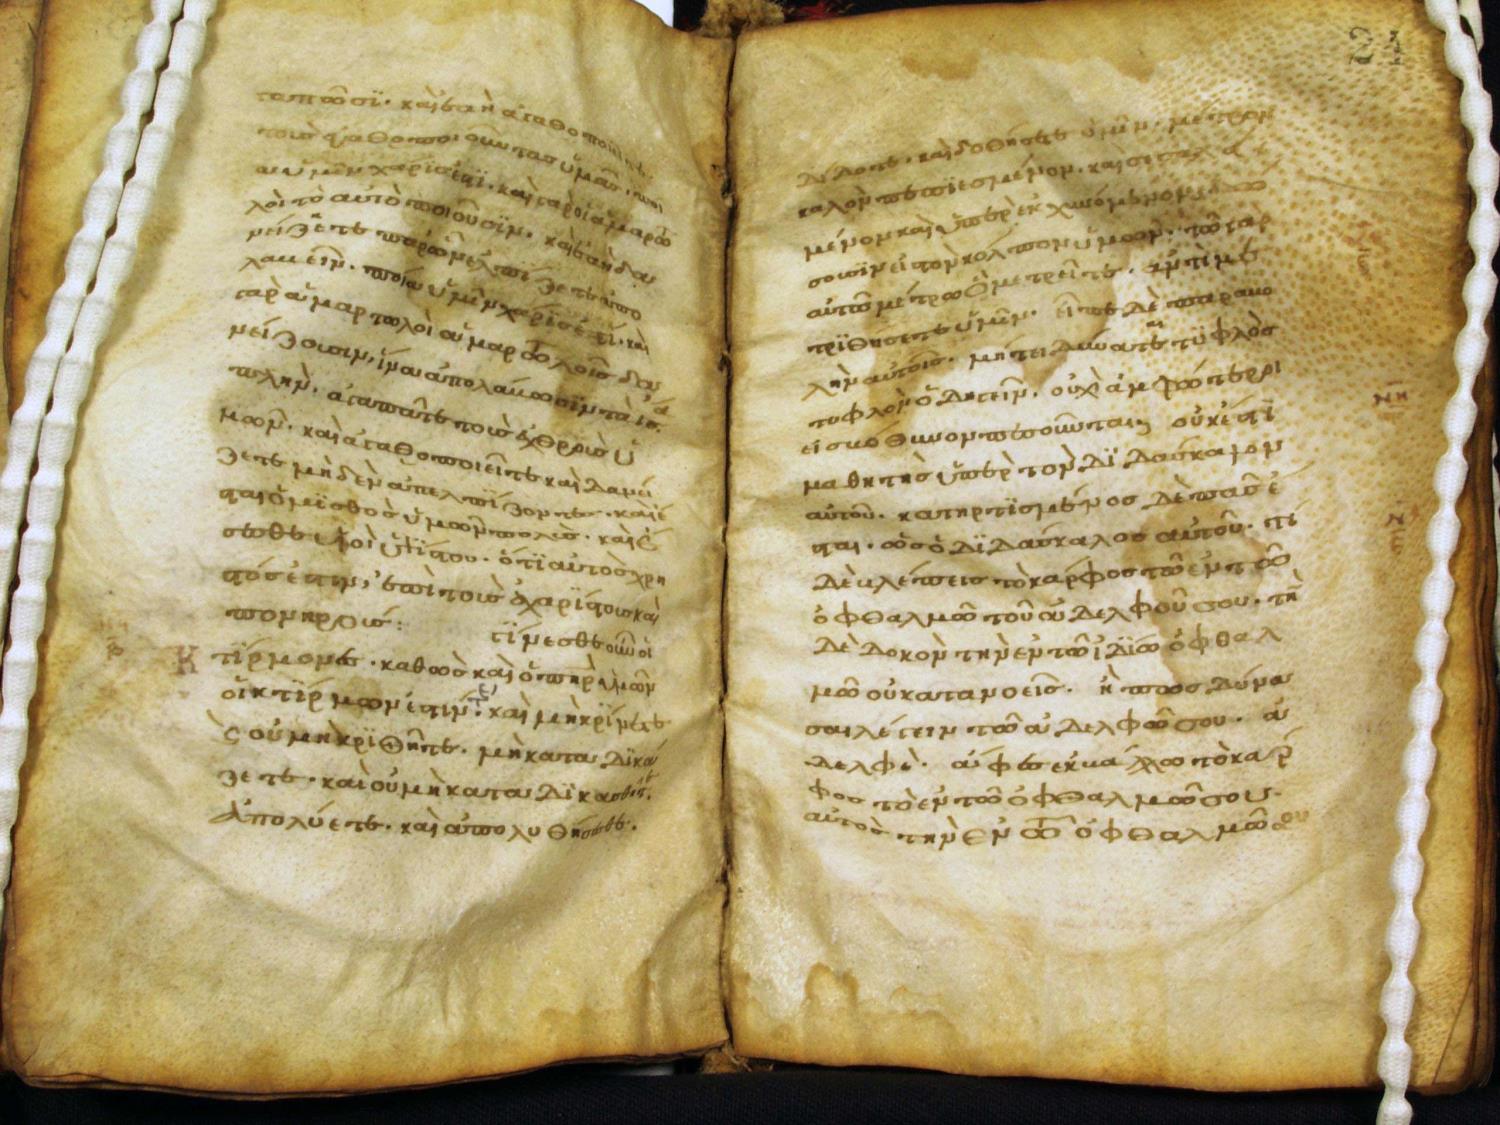 γαπῶσϊ. καὶ ἐὰν ἀγαθοποιῆτε
τοὺς ἀγαθοποιοῦντας ὑμᾶς, ποί
α ὑμῖν χάρις ἐστί. καὶ γὰρ οἱ ἁμαρτω
λοὶ τὸ αὐτὸ ποιοῦσϊν. καὶ ἐὰν δα
νείζητε παρ ὧν ἐλπίζετε ἀπο
λαβεῖν. ποία ὑμῖν χάρις ἐστί. καὶ
γὰρ ἁμαρτωλοὶ ἁμαρτωλοῖς δα
νείζουσιν, ἵνα ἀπολάβωσϊν τὰ ἴσα.
πλὴν. ἀγαπᾶτε τοὺς ἐχθροὺς ὑ
μῶν. καὶ ἀγαθοποιεῖτε καὶ δανεί
ζετε μηδὲν ἀπελπίζοντες. καὶ ἔ
σται ὁ μϊσθὸς ὑμῶν πολύς. καὶ ἔ
σεσθε υἱοὶ ὑψίστου. ὅτϊ αὐτὸς χρη
στός ἐστιν, ἐπὶ τοὺς ἀχαρίστους καὶ
πονηρούς: γϊνεσθε οὖν οἰ
κτίρμονες. καθὼς καὶ ὁ πηρ ὑμῶν
οἰκτίρμων ἐστίν. καὶ μὴ κρίνετε
ϛ οὐ μὴ κρϊθῆτε. μὴ καταδϊκά
ζετε. καὶ οὐ μὴ καταδϊκασθῆτε.
ἀπολύετε. καὶ ἀπολυθήσεσθε.
δίδοτε. καὶ δοθήσεται ὑμῖν. μέτρον
καλὸν πεπϊεσμένον. καὶ σεσαλευ
μένον καὶ ὑπερεκχυνόμενον δώ
σουσϊν εἰς τὸν κόλπον ὑμῶν. τῶ γὰρ
αὐτῶ μέτρω ὧ μετρεῖτε. ἀντιμε
τρϊθήσεται ὑμῖν. εἶπε δὲ παραβο
λὴν αὐτοῖς. μήτι δύναται τϋφλὸς
τυφλὸν ὁδηγεῖν. οὐχὶ ἀμφότεροι
εἰς βόθυνον πεσοῦνται; οὐκ ἔστϊ
μαθητὴς ὑπὲρ τὸν δϊδάσκαλον
αὐτοῦ. κατηρτϊσμένος δὲ πᾶς ἔ
σται. ὡς ὁ δϊδάσκαλος αὐτοῦ. τί
δὲ βλέπεις τὸ κάρφος τὸ ἐν τῶ
ὀφθαλμῶ τοῦ ἀδελφοῦ σου. τὴν
δὲ δοκὸν τὴν ἐν τῶ ἰδϊω ὀφθαλ
μῶ οὐ κατανοεῖς. ἢ πῶς δύνα
σαι λέγειν τῶ ἀδελφῶ σου. ἀ
δελφὲ. ἄφες ἐκβάλω τὸ κάρ
φος τὸ ἐν τῶ ὀφθαλμῶ σου.
αὐτὸς τὴν ἐν τῶ ὀφθαλμῶ σου